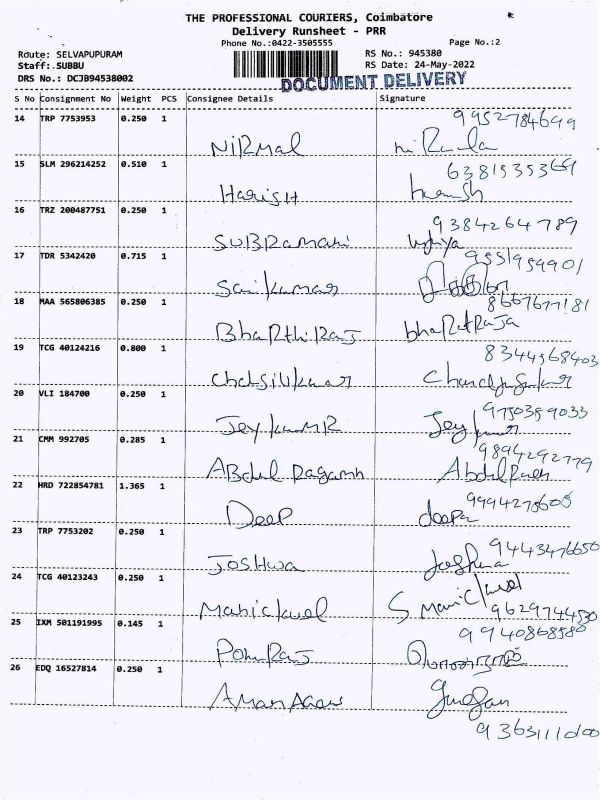 THE PROFESSIONAL COURIERS, Coimbatore
Delivery Runsheet - PRR
Phone No.:0422-3505555 Page No.:2
Route: SELVAPUPURAM RS No.: 945380
Staff:.SUBBU RS Date: 24-May-2022
DRS No.: DCJB94538002 DOCUMENT DELIVERY
S No Consignment No Weight PCS Consignee Details Signature
14 TRP 7753953 0.250 1
9952784699
NiRMal
15 SLM 296214252 0.510 1
6381535369
HarisH
16 TRZ 200487751 0.250 1
9384264789
SUBRamani
17 TDR 5342420 0.715 1
9551959901
Saikumar
18 MAA 565806385 0.250 1
BhaRthiRaJ bhaRatRaJa
19 TCG 40124216 0.800 1
8344568403
20 VLI 184700 0.250 1
9750359033
JeykumR Jey
21 CMM 992705 0.285 1
9894292779
ABdul Ragamn
22 HRD 722854781 1.365 1
9994275605
Deep deepa
23 TRP 7753202 0.250 1
9443476650
JosHwa Joshwa
24 TCG 40123243 0.250 1
Manickavel S Manickavel
9629744530
25 IXM 501191995 0.145 1
9940868580
PonRaJ பொன்ராஜ்
26 EDQ 16527814 0.250 1